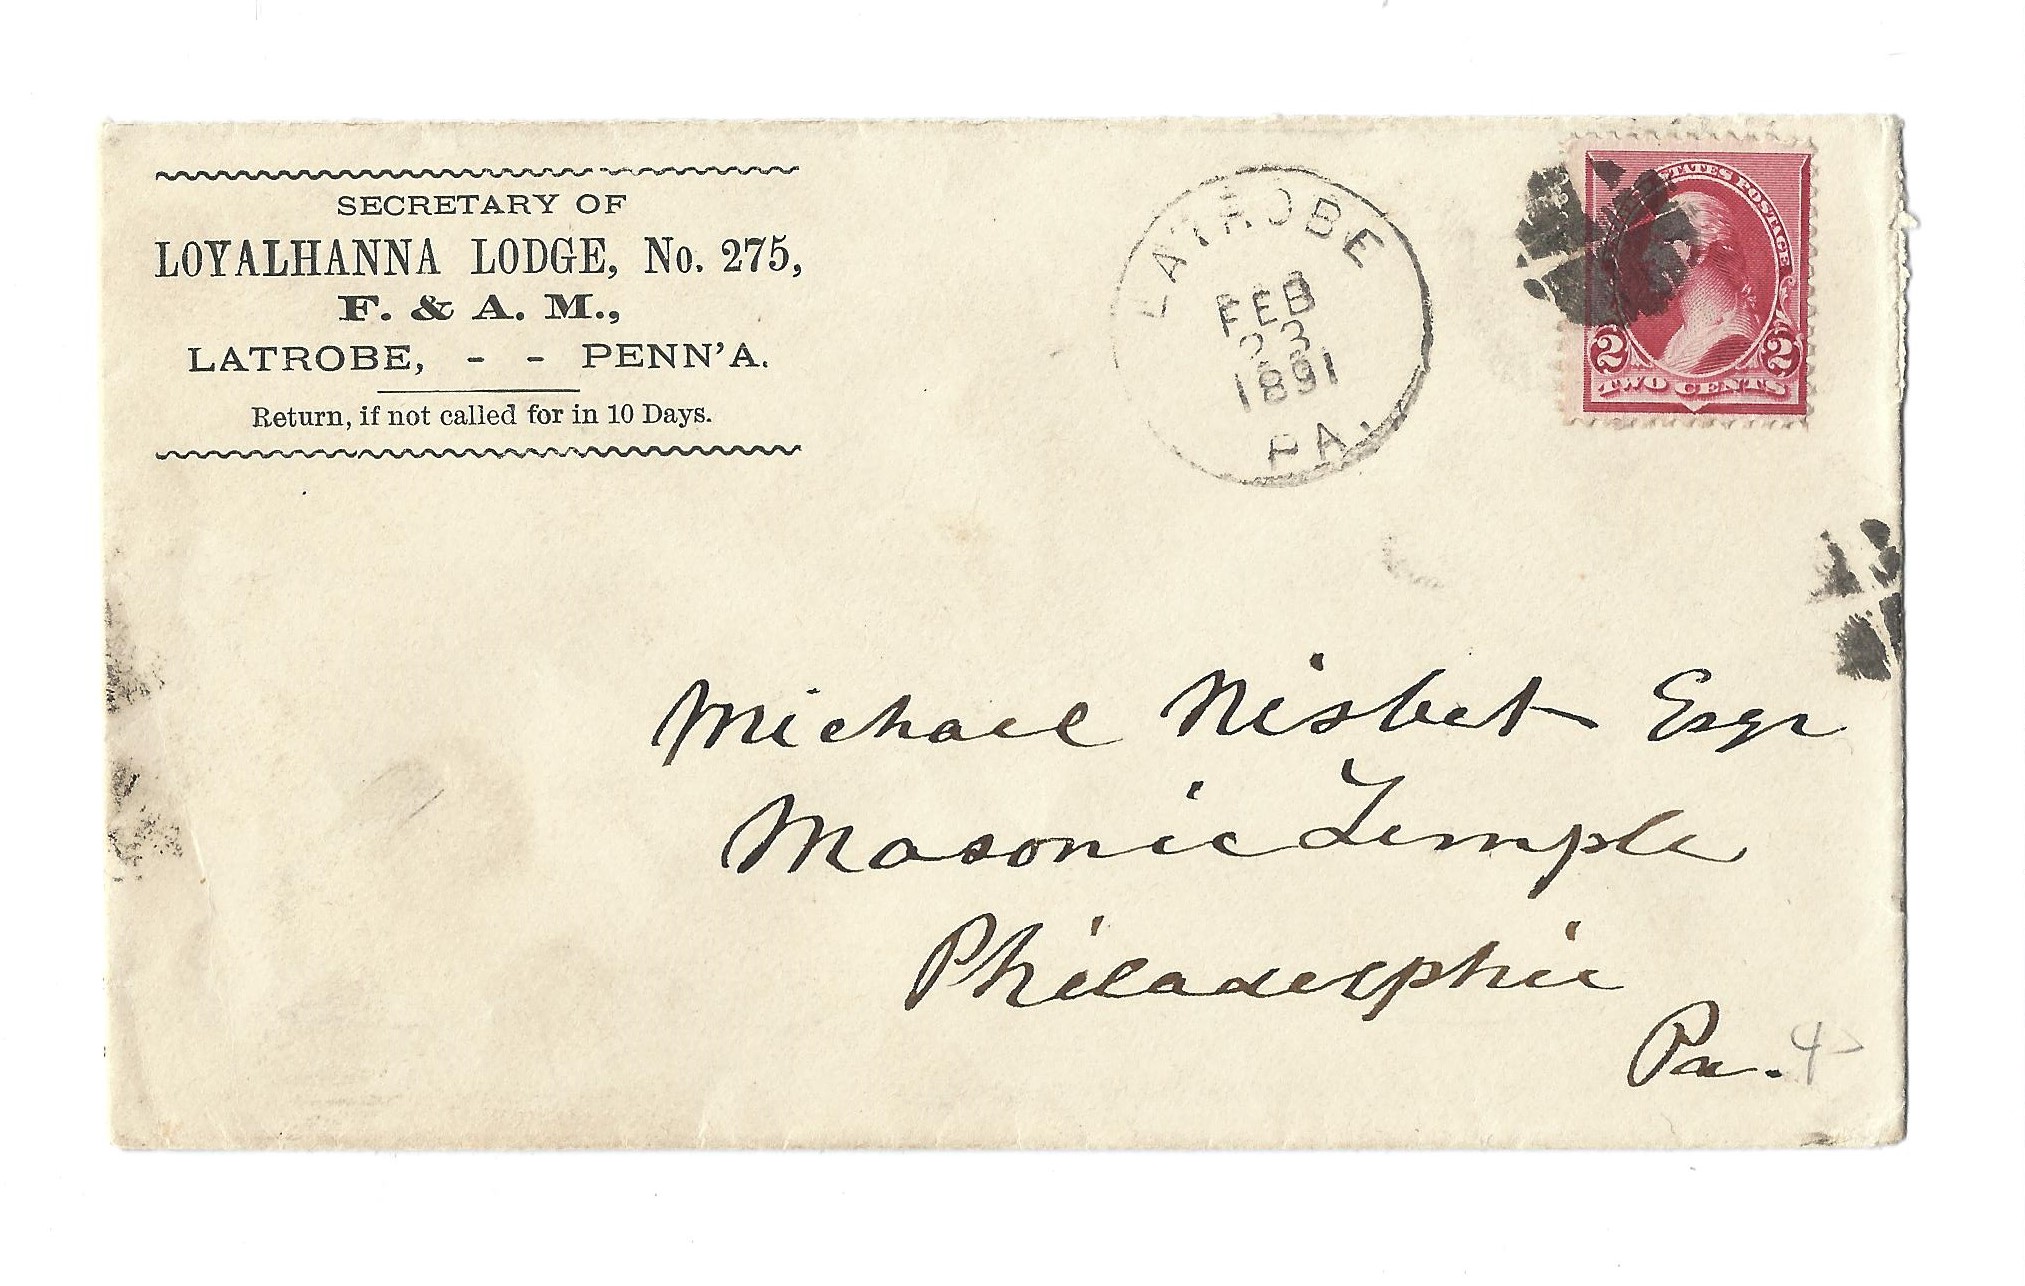 SECRETARY OF
LOYALHANNA LODGE, No. 275,
F. & A. M.,
LATROBE, - - PENN'A.
Return, if not called for in 10 Days.
LATROBE
FEB
23
1891
PA.
STATES POSTAGE
2 2
TWO CENTS
Michael Nisbet Esqr
Masonic Temple
Philadelphia
Pa.
4